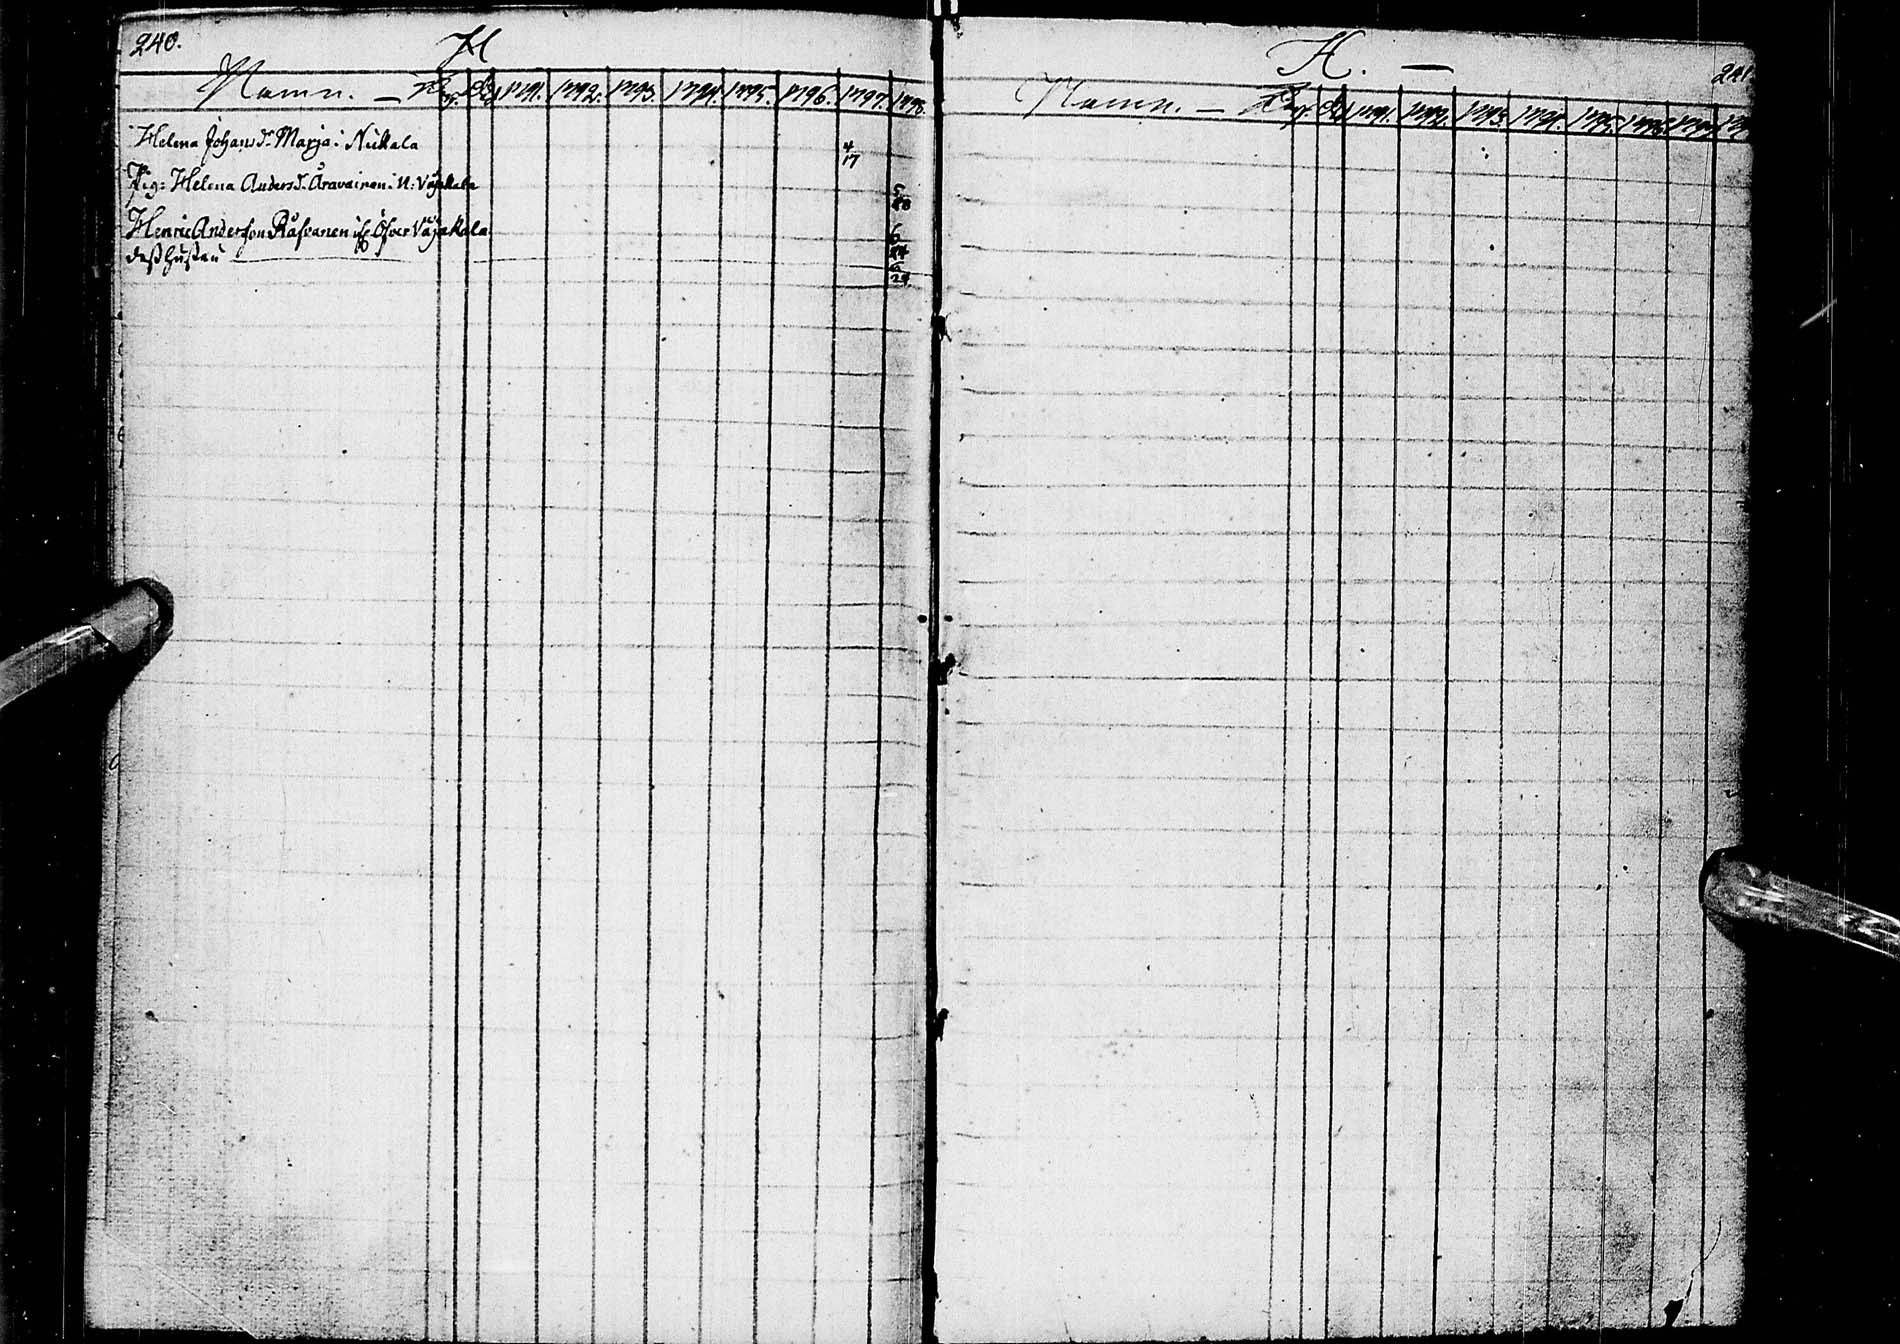 240.
H
Namn. — 1791. 1792. 1793. 1794. 1795. 1796. 1797. 1798.
Helena Johansd:r Marja: Nukala 4/17
Pig: Helena Andersd:r N: Väjakala 5/20
Henric Andersson Räsänen Öfver Väjakala 6/24
dess hustru 6/24
H. —
241.
Namn. — 1791. 1792. 1793. 1794. 1795. 1796. 1797.